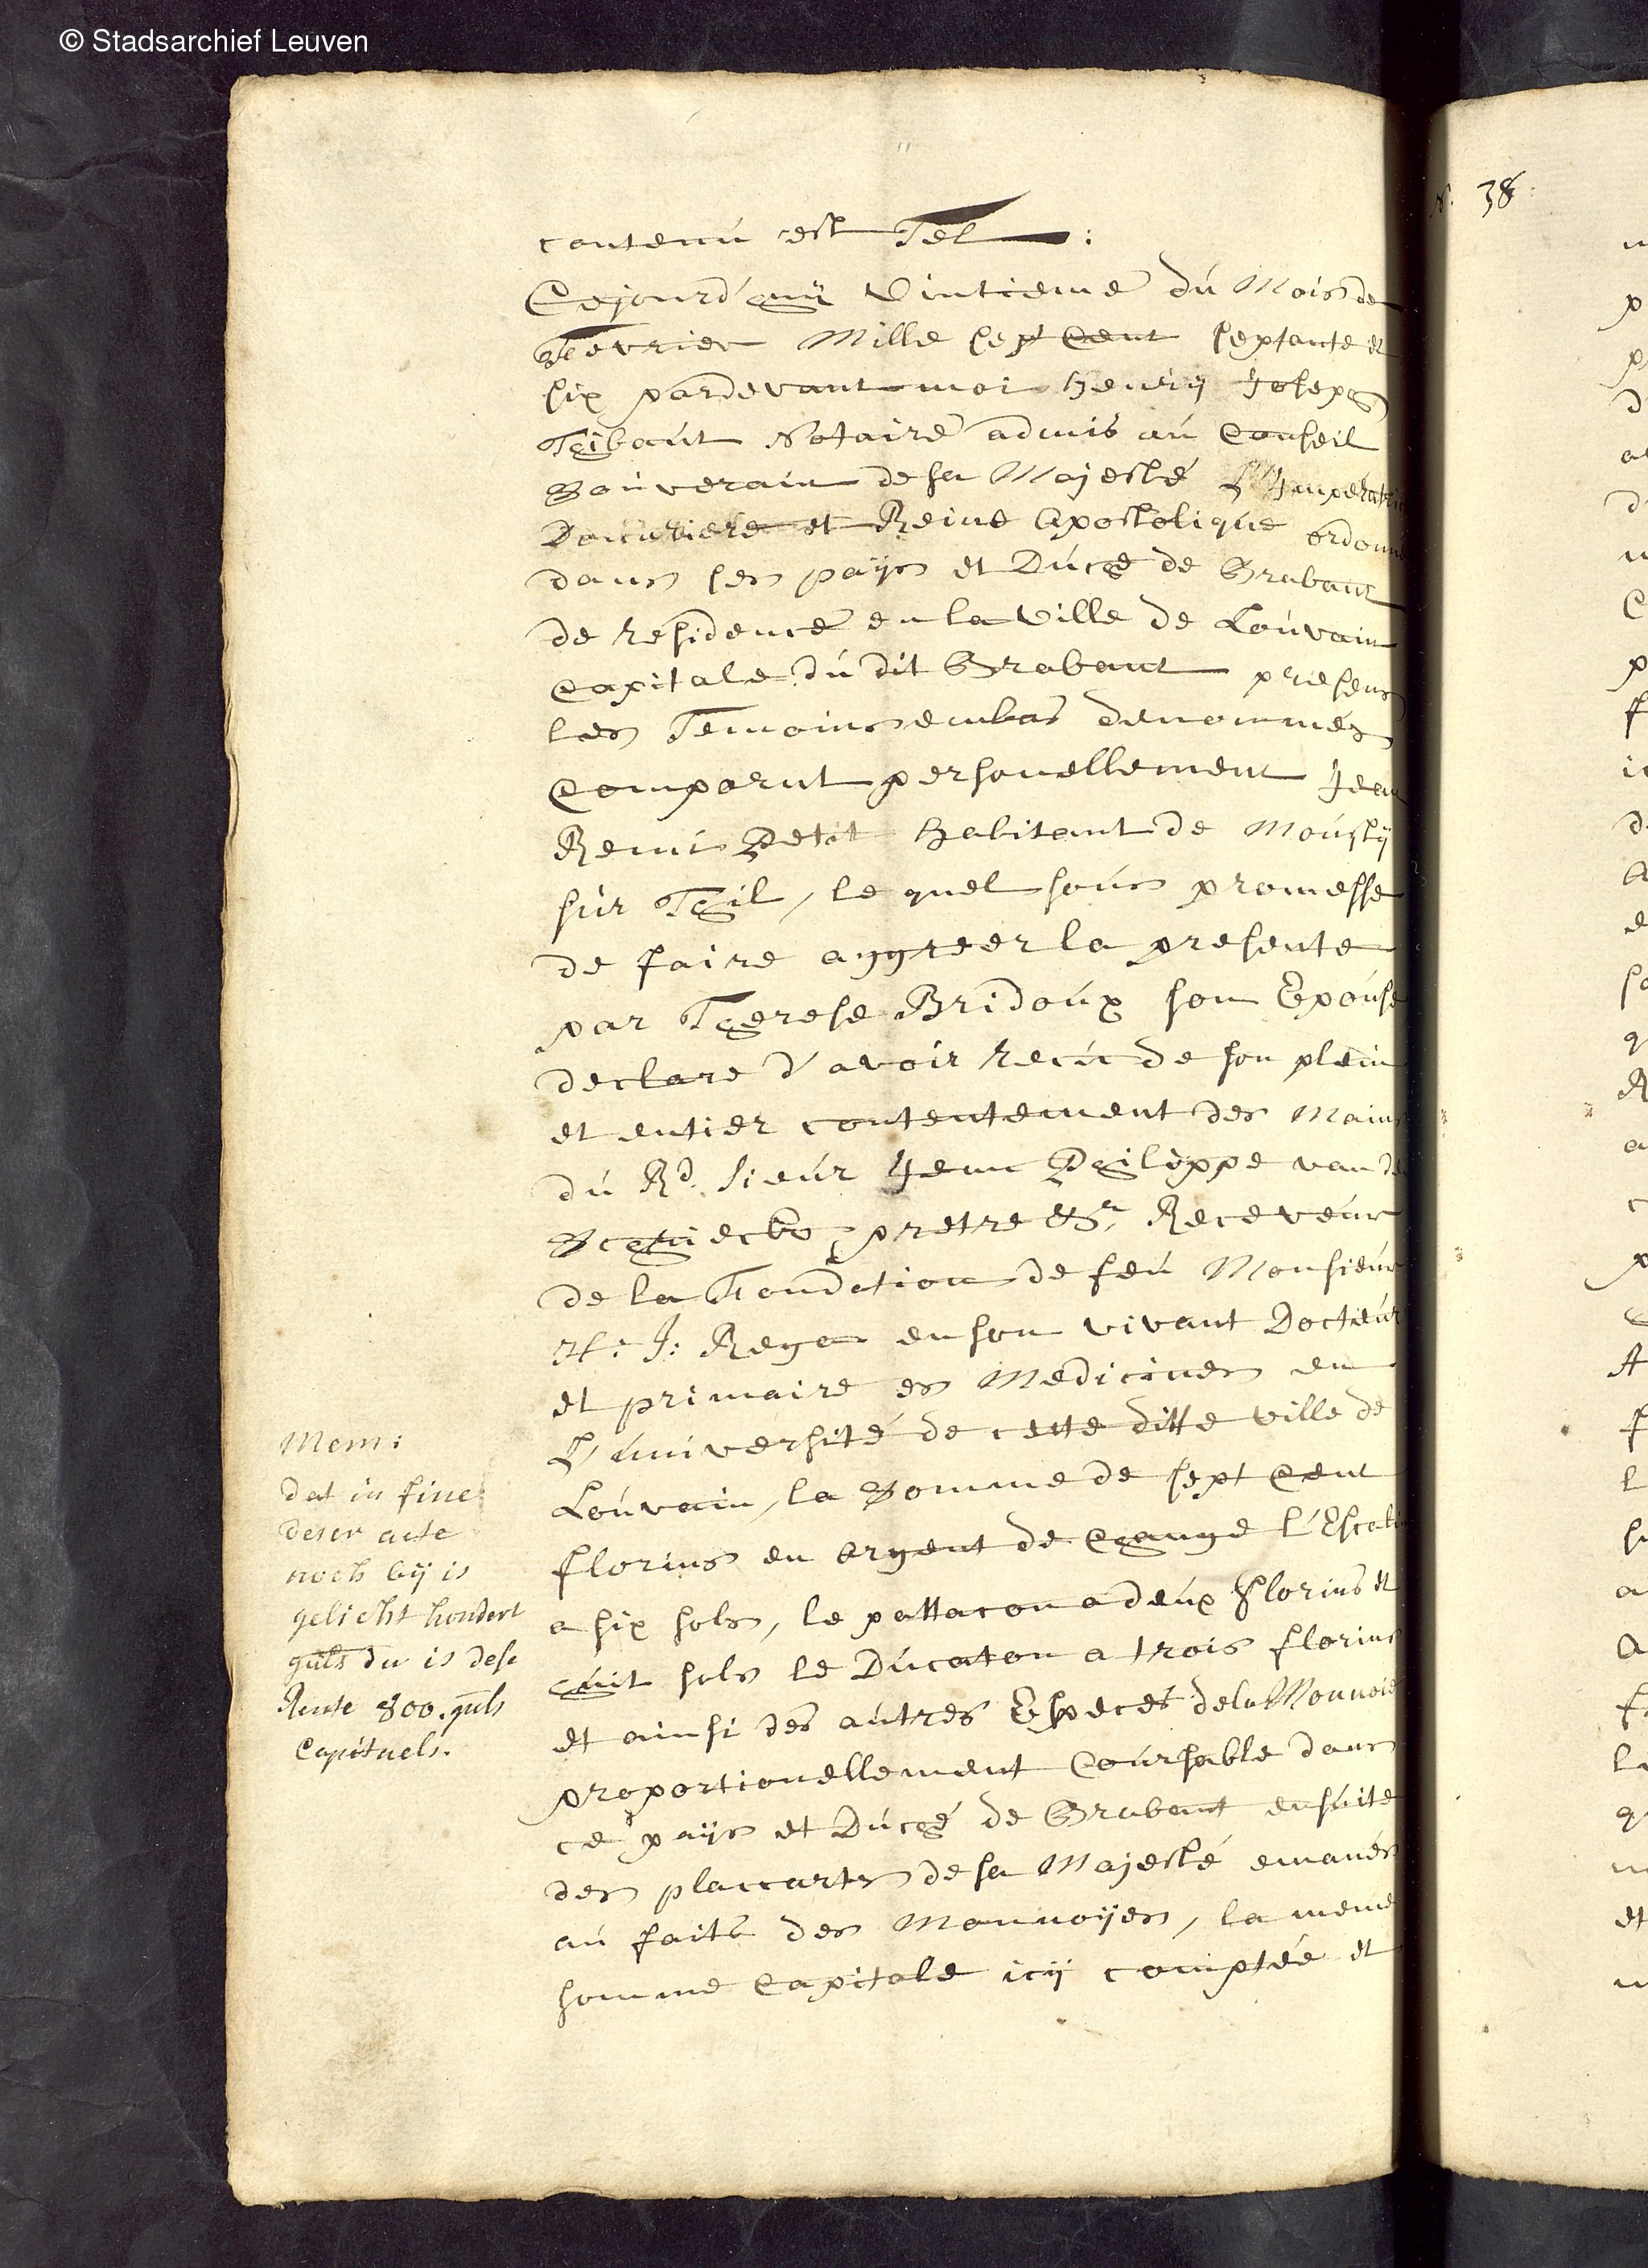 © Stadsarchief Leuven
contenu est Tel :
Cejourd'huÿ Vintieme du Mois de
Fevrier Mille sept Cent septante et
six pardevant moi Henrÿ Joseph
Thibaut Notaire admis au Conseil
Souverain de sa Majesté L'Imperatrice
Douariere et Reine Apostolique ordonné
dans ses paÿs et Duché de Brabant
de residence en la Ville de Louvain
Capitale du dit Brabant presens
les Temoins enbas denommés
Comparut personellement Jean
Remi Petit Habitant de Moustÿ
sur Thil, le quel sous promesse
de faire aggreer la presente
par Therese Bridoux son Epouse
declare d'avoir recu de son plein
et entier contentement des Mains
du Rd. sieur Jean Philippe vande
Schrieck, pretre &a. Receveur
de la Fondation de feu Monsieur
H: J: Rega en son vivant Docteur
et primaire es Medicines en
L'université de cette ditte ville de
Louvain, la Somme de sept Cent
florins en argent de Change l'Escalin
a six sols, le pattacon a deux florins et
huit sols le Ducaton a trois florins
et ainsi des autres Especes de la Monnoie
proportionellement Coursable dans
ce paÿs et Duché de Brabant ensuite
des placcarts de sa Majesté emanés
au faits des Monnoÿes, la meme
somme Capitale icÿ comptée et
Mem:
dat in fine
deser acte
noch bÿ is
gelicht hondert
guls du is dese
Rente 800. guls
Capitaels.
N. 38: